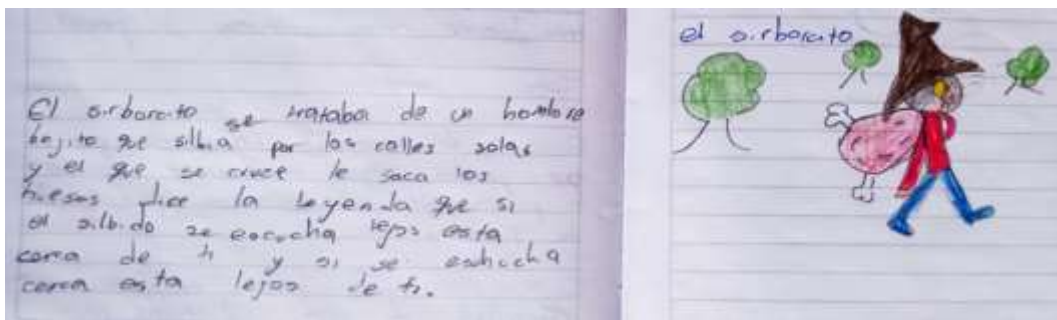 El sirborcito se trataba de un hombre
bejito que silbia por las calles solas
y el que se cruce le saca los
huesos dice la leyenda que si
el silbido se escucha lejos esta
cerca de ti y si se eshucha
cerca esta lejos de ti.
el sirborcito